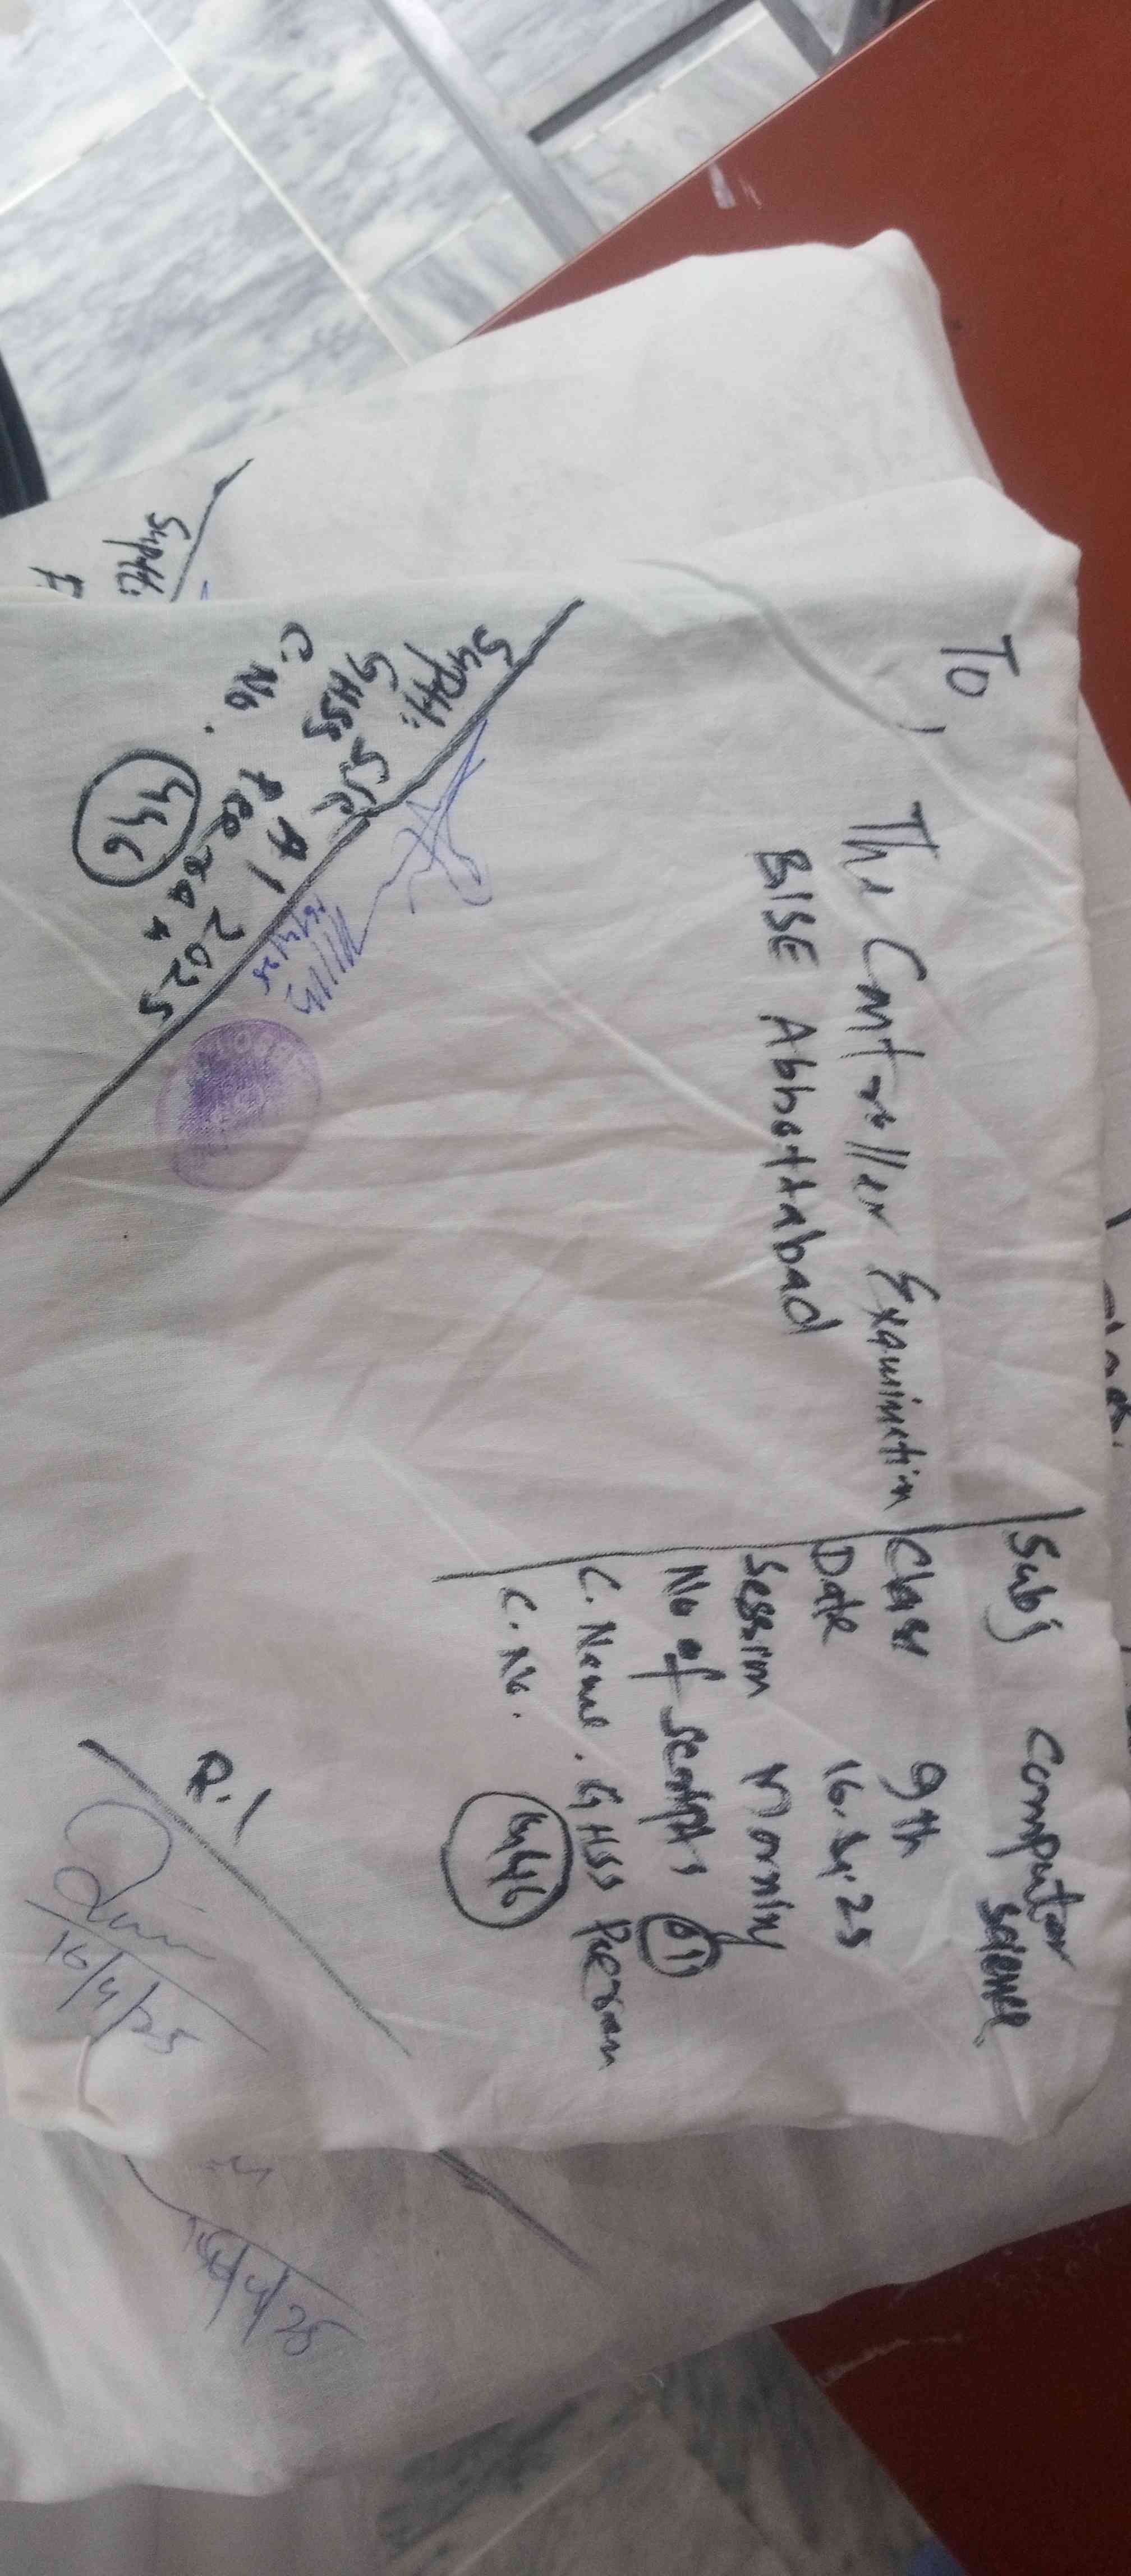 To,
The Controller Examination
BISE Abbottabad
Subj Computer
Science
Class 9th
Date 16.4.25
Session Morning
No of scripts
C. Name. GHSS
C. No. 446
Suptt: SSC A1 2025
GHSS
C. No. 446
16/4/25
R.I
16/4/25
Suptt:
16/4/25